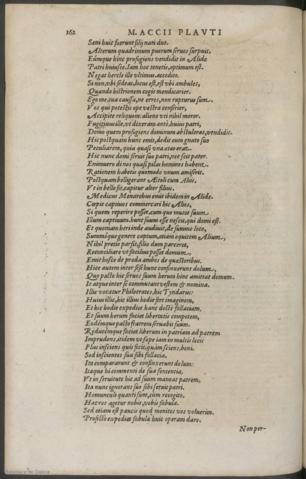 262 M. ACCII PLAVTI
Seni huic fuerunt filij nati duo.
Alterum quadrimum puerum seruus surpuit.
Eúmque hinc profugiens vendidit in Alide
Patri huiusce. Iam hoc tenetis, optimum est.
Negat hercle ille vltimus. accedito.
Si non vbi sedeas, locus est, est vbi ambules,
Quando histrionem cogis mendicarier.
Ego me tua caussa, ne erres, non rupturus sum.
Vos qui potestis ope vestra censerier,
Accipite reliquum: alieno vti nihil moror.
Fugitiuus ille, vt dixeram antè, huius patri,
Domo quem profugiens dominum abstulerat, vendidit.
Hic postquam hunc emit, dedit eum gnato suo
Peculiarem, quia quasi vna ætas erat.
Hic nunc domi seruit suo patri, nec scit pater.
Enimuero di nos quasi pilas homines habent.
Rationem habetis quomodo vnum amiserit.
Postquam belligerant Aetoli cum Aliis,
Vt in bello fit, capitur alter filius.
Medicus Menarchus emit ibidem in Alide.
Cœpit captiuos commercari hic Alios,
Si quem reperire posset, cum quo mutet suum.
Illum captiuum: hunc suum esse nescit, qui domi est.
Et quoniam heri inde audiuit, de summo loco,
Summóque genere captum, etiam equitem Alium,
Nihil pretio parsit, filio dum parceret,
Reconciliare vt facilius posset domum.
Emit hosce de præda ambos de quæstoribus.
Hice autem inter sese hunc consinxerunt dolum,
Quo pacto hic seruus suum herum hinc amittat domum.
It aque inter se commutant vestem & nomina.
Illic vocatur Philocrates, hic Tyndarus:
Huius illic, hic illius hodie fert imaginem,
Et hic hodie expediet hanc doctè fallaciam,
Et suum herum faciet libertatis compotem,
Eodémque pacto fratrem seruabit suum,
Reducémque faciet liberum in patriam ad patrem
Imprudens, itidem vt sæpe iam in multis locis
Plus insciens quis fecit, quàm sciens, boni.
Sed inscientes sua sibi fallacia,
Ita compararunt & consinxerunt dolum:
Itaque hi commenti de sua sententia,
Vt in seruitute hic ad suum maneat patrem,
Ita nunc ignorans suo sibi seruit patri.
Homunculi quanti sunt, cùm recogito.
Hæc res agetur nobis, vobis fabula.
Sed etiam est paucis quod monitos vos voluerim.
Profectò expediet fabulæ huic operam dare.
Non per-